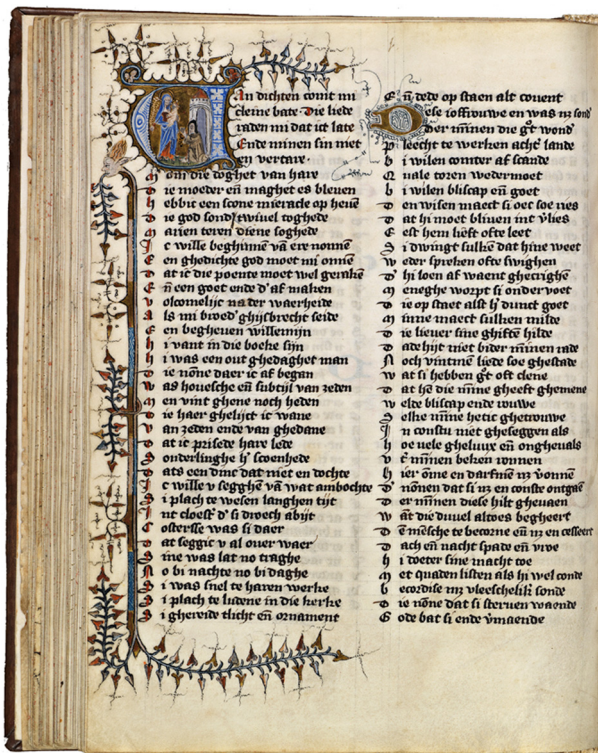 Van dichten comt mi
cleine bate · Die liede
raden mi dat ict late
Ende minen sin niet
en vertare
Om die doghet van hare
Die moeder eñ maghet es bleuen
Hebbic een scone mieracle op heuē
Die god sond' twiuel toghede
Marien teren diene soghede
Ic wille beghinnen vā ere nonnen
Een ghedichte god moet mi onnen
Dat ic die poente moet wel geraken
Eñ een goet ende d'af maken
Volcomelijc na der waerheide
Als mi broed' ghijsbrecht seide
Een begheuen willemijn
Hi vant in die boeke sijn
Hi was een out ghedaghet man
Die nōne daer ic af began
Was houesche eñ subtijl van zeden
Men vint ghene noch heden
Die haer ghelijct ic wane
Van zeden ende van ghedane
Dat ic prisede hare lede
Sonderlinghe h' scoenhede
Dats een dinc dat niet en dochte
Ic wille v segghē vā wat ambochte
Si plach te wesen langhen tijt
Int cloest' d' si droech abijt
Costersse was si daer
Dat seggic v al ouer waer
Sine was lat no traghe
No bi nachte no bi daghe
Si was snel te haren werke
Si plach te ludene in die kerke
Si ghereide tlicht eñ ornament
Eñ dede op staen alt couent
Dese ioffrouwe en was nz sond'
Der mīnen die g't wond'
Pleecht te werken acht' lande
Bi wilen comter af scande
Quale toren wedermoet
Bi wilen bliscap eñ goet
Den wisen maect si oec soe ries
Dat hi moet bliuen int v'lies
Eest hem lieft ofte leet
Si dwingt sulkē dat hine weet
Weder spreken ofte swighen
D' hi loen af waent ghecrighen
Meneghe worpt si onder voet
Die op staet alst h' dunct goet
Minne maect sulken milde
Die lieuer sine ghiftē hilde
Dade hijt niet bider mīnen rade
Noch vintmen liede soe ghestade
Wat si hebben g't oft clene
Dat hē die mīne gheeft ghemene
Welde bliscap ende rouwe
Selke mīne hetic ghetrouwe
In constu niet gheseggen als
Hoe vele gheluux eñ ongheuals
Vt' mīnen beken ronnen
Hier ōme en darfmen nz v'onnen
D' nōnen dat si nz en conste ontgaē
D'er mīnen diese hilt gheuaen
Want die duuel altoes begheert
Dē mēsche te becorne eñ nz en cesseert
Dach eñ nacht spade eñ vroe
Hi doeter sine macht toe
Met quaden listen als hi wel conde
Becordise mz vleescheliker sonde
Die nōne dat si steruen waende
Gode bat si ende v'maende